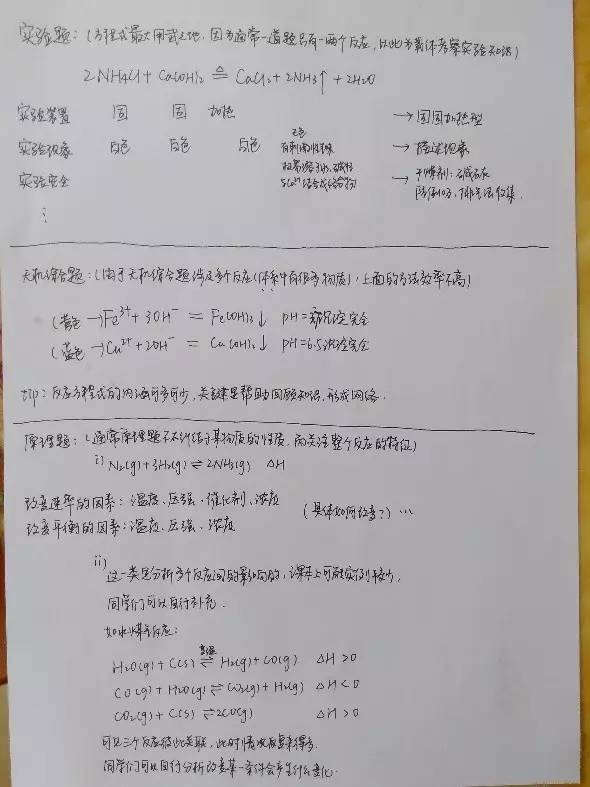 实验题：（方程式最大用武之地，因为通常一道题只有一两个反应，以此为载体考察实验知识）
2NH4Cl + Ca(OH)2 △= CaCl2 + 2NH3↑ + 2H2O
实验装置 固 固 加热 → 固固加热型
实验现象 白色 白色 白色 无色 有刺激性气味 → 描述现象
实验安全 极易溶于水，碱性 与Ca2+结合成络合物 → 干燥剂：碱石灰 防倒吸，排空气法收集.
⋮
无机综合题：（由于无机综合题涉及多个反应（体系中有很多物质），上面的方法效率不高）
（黄色→）Fe3+ + 3OH- = Fe(OH)3↓ pH= 沉淀完全
（蓝色→）Cu2+ + 2OH- = Cu(OH)2↓ pH=6.5沉淀完全
tip：反应方程式的内涵可多可少，关键是帮助回顾知识，形成网络.
原理题：（通常原理题不纠结于某物质的性质，而关注整个反应的特征）
i) N2(g) + 3H2(g) ⇌ 2NH3(g) △H
改变速率的因素：温度、压强、催化剂、浓度 （具体如何改变？）…
改变平衡的因素：温度、压强、浓度
ii)
这一类是分析多个反应间的影响的，课本上可能实例较少，
同学们可以自行补充.
如水煤气反应：
H2O(g) + C(s) 高温⇌ H2(g) + CO(g) △H >0
CO(g) + H2O(g) ⇌ CO2(g) + H2(g) △H <0
CO2(g) + C(s) ⇌ 2CO(g) △H >0
可见三个反应彼此关联，此时情况复杂得多.
同学们可以自行分析改变某一条件会产生什么变化.